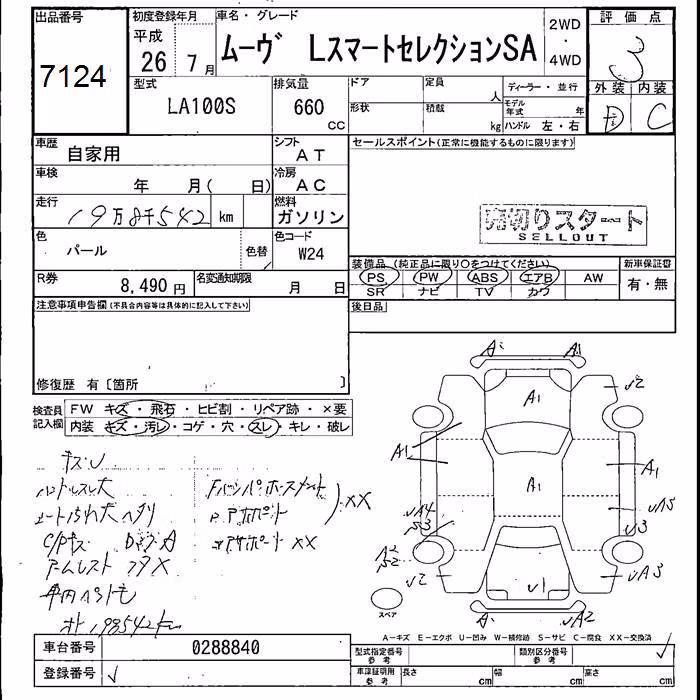 出品番号 初度登録年月 車名・グレード 2WD・4WD 評価点
7124 平成 26年 7月 ムーヴ LスマートセレクションSA 3
型式 排気量 ドア 定員 人 ディーラー・並行 外装 内装
LA100S 660 CC 形状 積載 kg モデル年式 年 ハンドル 左・右 D C
車歴 自家用 シフト AT セールスポイント(正常に機能するものに限ります)
車検 年 月( 日) 冷房 AC
走行 19万8千542 km 燃料 ガソリン 売切りスタート
SELLOUT
色 パール 色替 色コード W24
装備品(純正品に限り○をつけてください) 新車保証書
PS PW ABS エアB AW 有・無
SR ナビ TV カワ
R券 8,490円 名変通知期限 月 日 後日品
注意事項申告欄(不具合内容等は具体的に記入して下さい)
修復歴 有〔箇所 〕
検査員記入欄 FW キズ・飛石・ヒビ割・リペア跡・×要
内装 キズ・汚レ・コゲ・穴・スレ・キレ・破レ
A A1
A1 √2
A1 A1
A1 √A5
√A4 √3
√2 √1 √A3
A √A2
キズ√
ハンドルスレ大
シート汚れ大ヘタリ
××
アームレスト
車内ヘコミモ
オド198542km
スペア
A-キズ E-エクボ U-凹み W-補修跡 S-サビ C-腐食 XX-交換済
車台番号 0288840 型式指定番号 参考 類別区分番号 参考 √
登録番号 √ 車庫証明用 参考 長さ cm 幅 cm 高さ cm